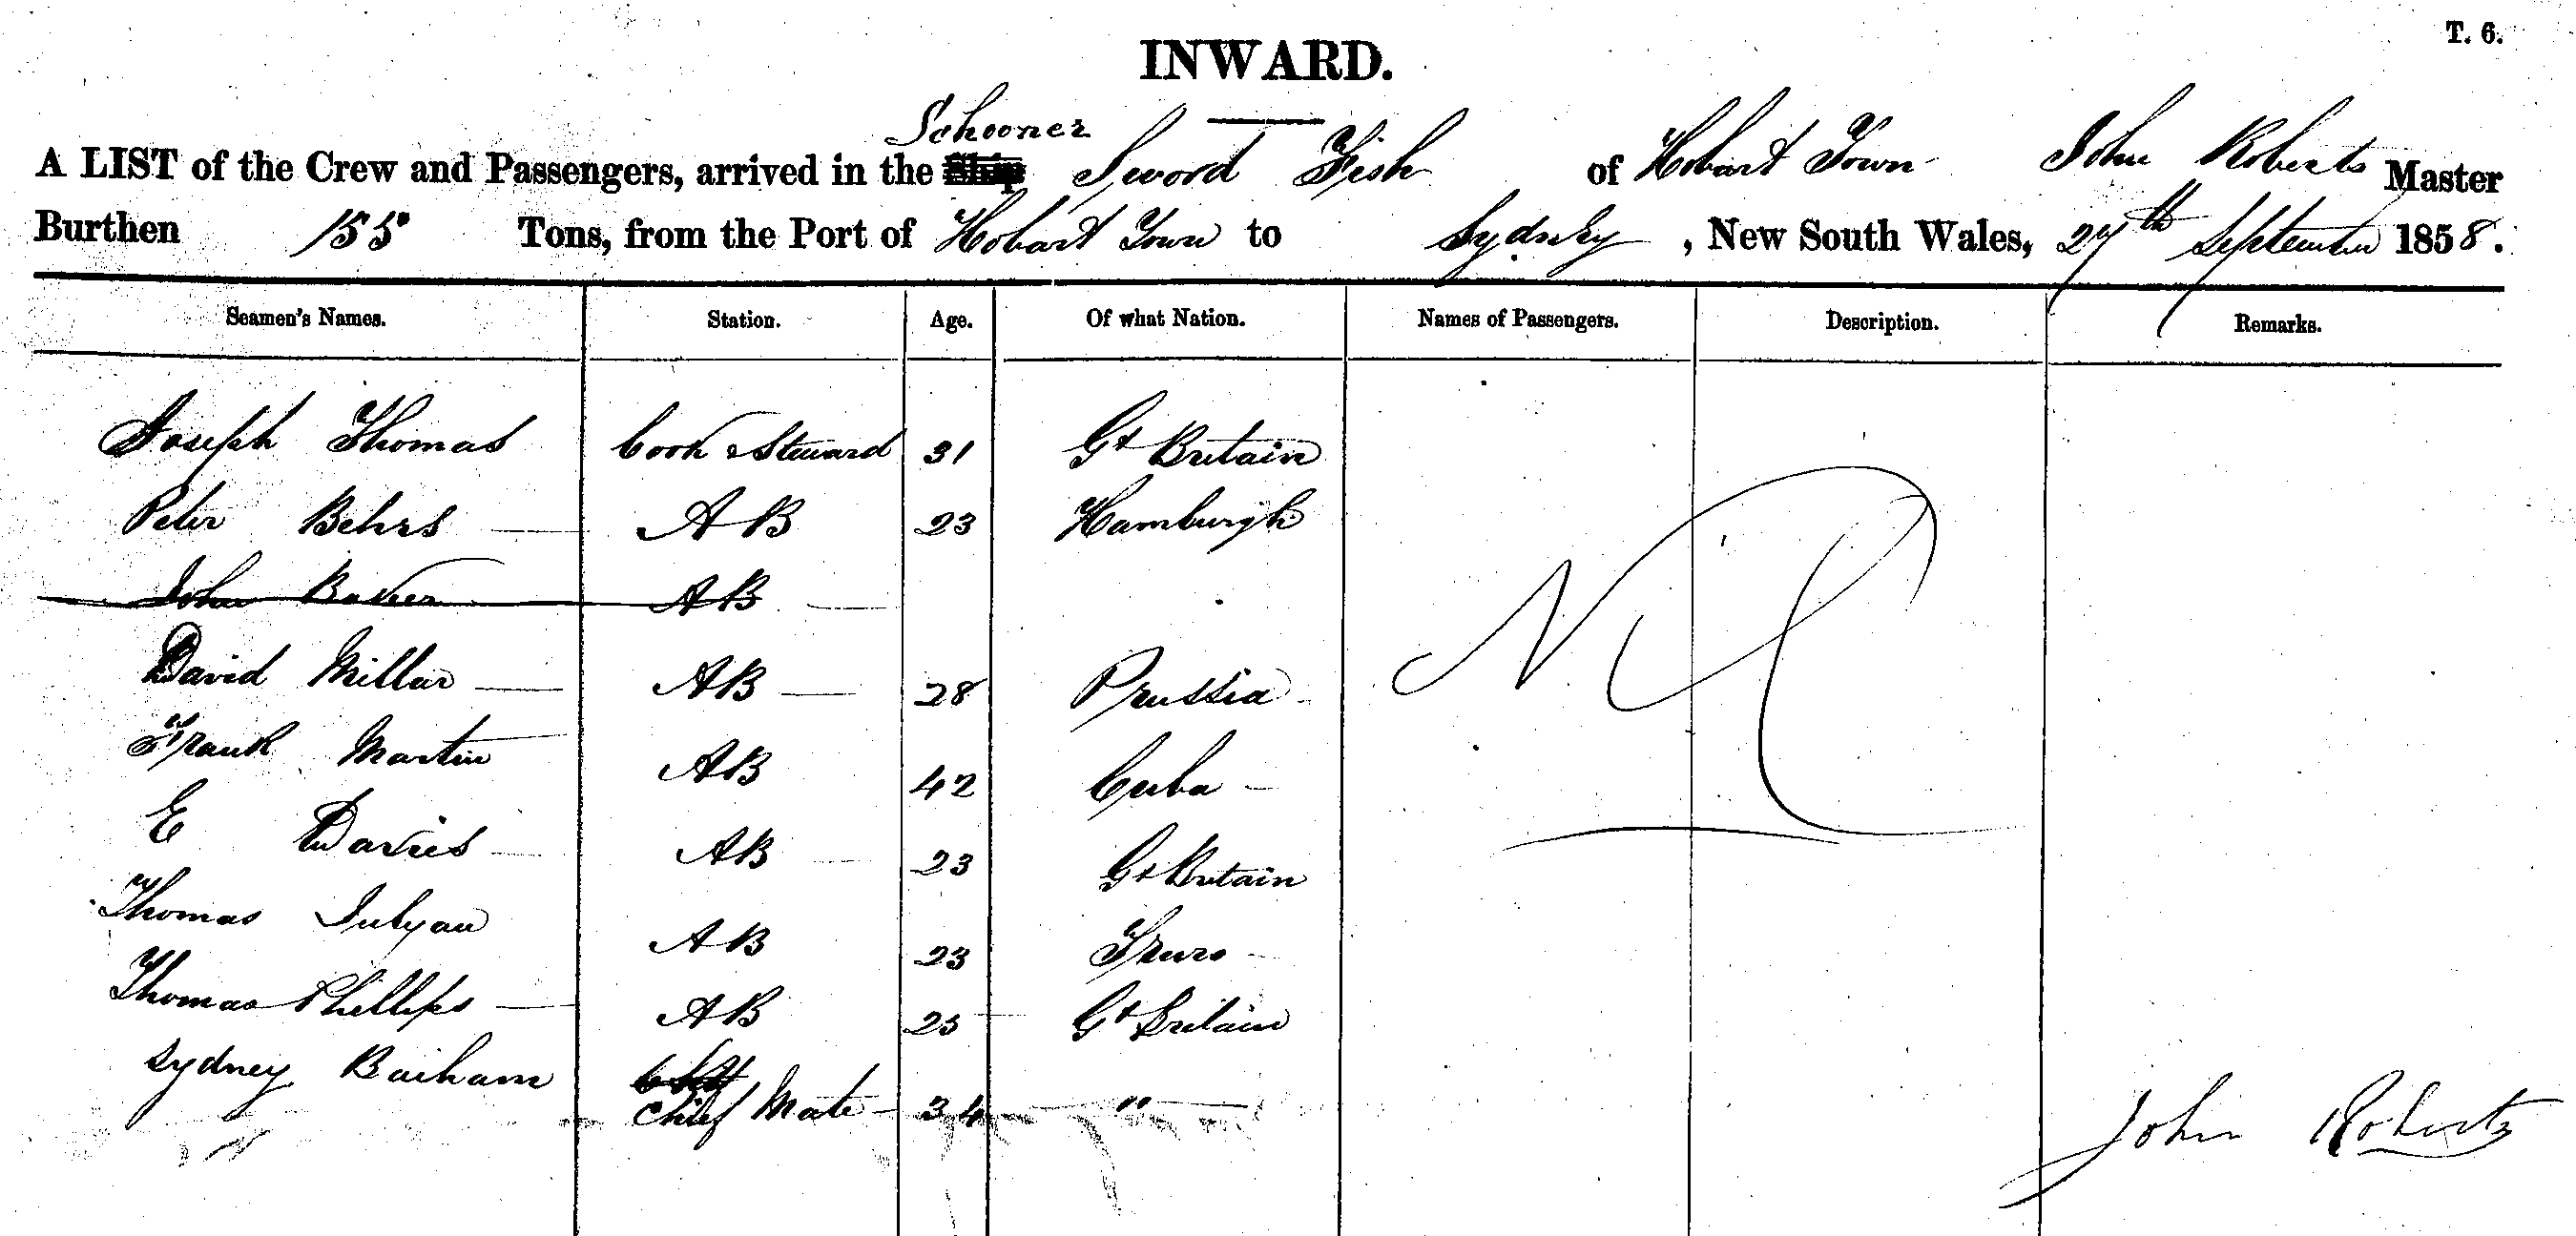 T. 6.
INWARD.
Schooner
A LIST of the Crew and Passengers, arrived in the Ship Sword Fish of Hobart Town John Roberts Master
Burthen 155 Tons, from the Port of Hobart Town to Sydney, New South Wales, 27th September 1858.
Seamen's Names. Station. Age. Of what Nation. Names of Passengers. Description. Remarks.
Joseph Thomas Cook & Steward 31 Gt Britain
Peter Behrs AB 23 Hamburgh
John Baker AB
David Millar AB 28 Prussia
Frank Martin AB 42 Cuba
Nil
E Davies AB 23 Gt Britain
Thomas Julyan AB 23 Truro
Thomas Phillips AB 25 Gt Britain
Sydney Barham Chief Mate 34 "
John Roberts